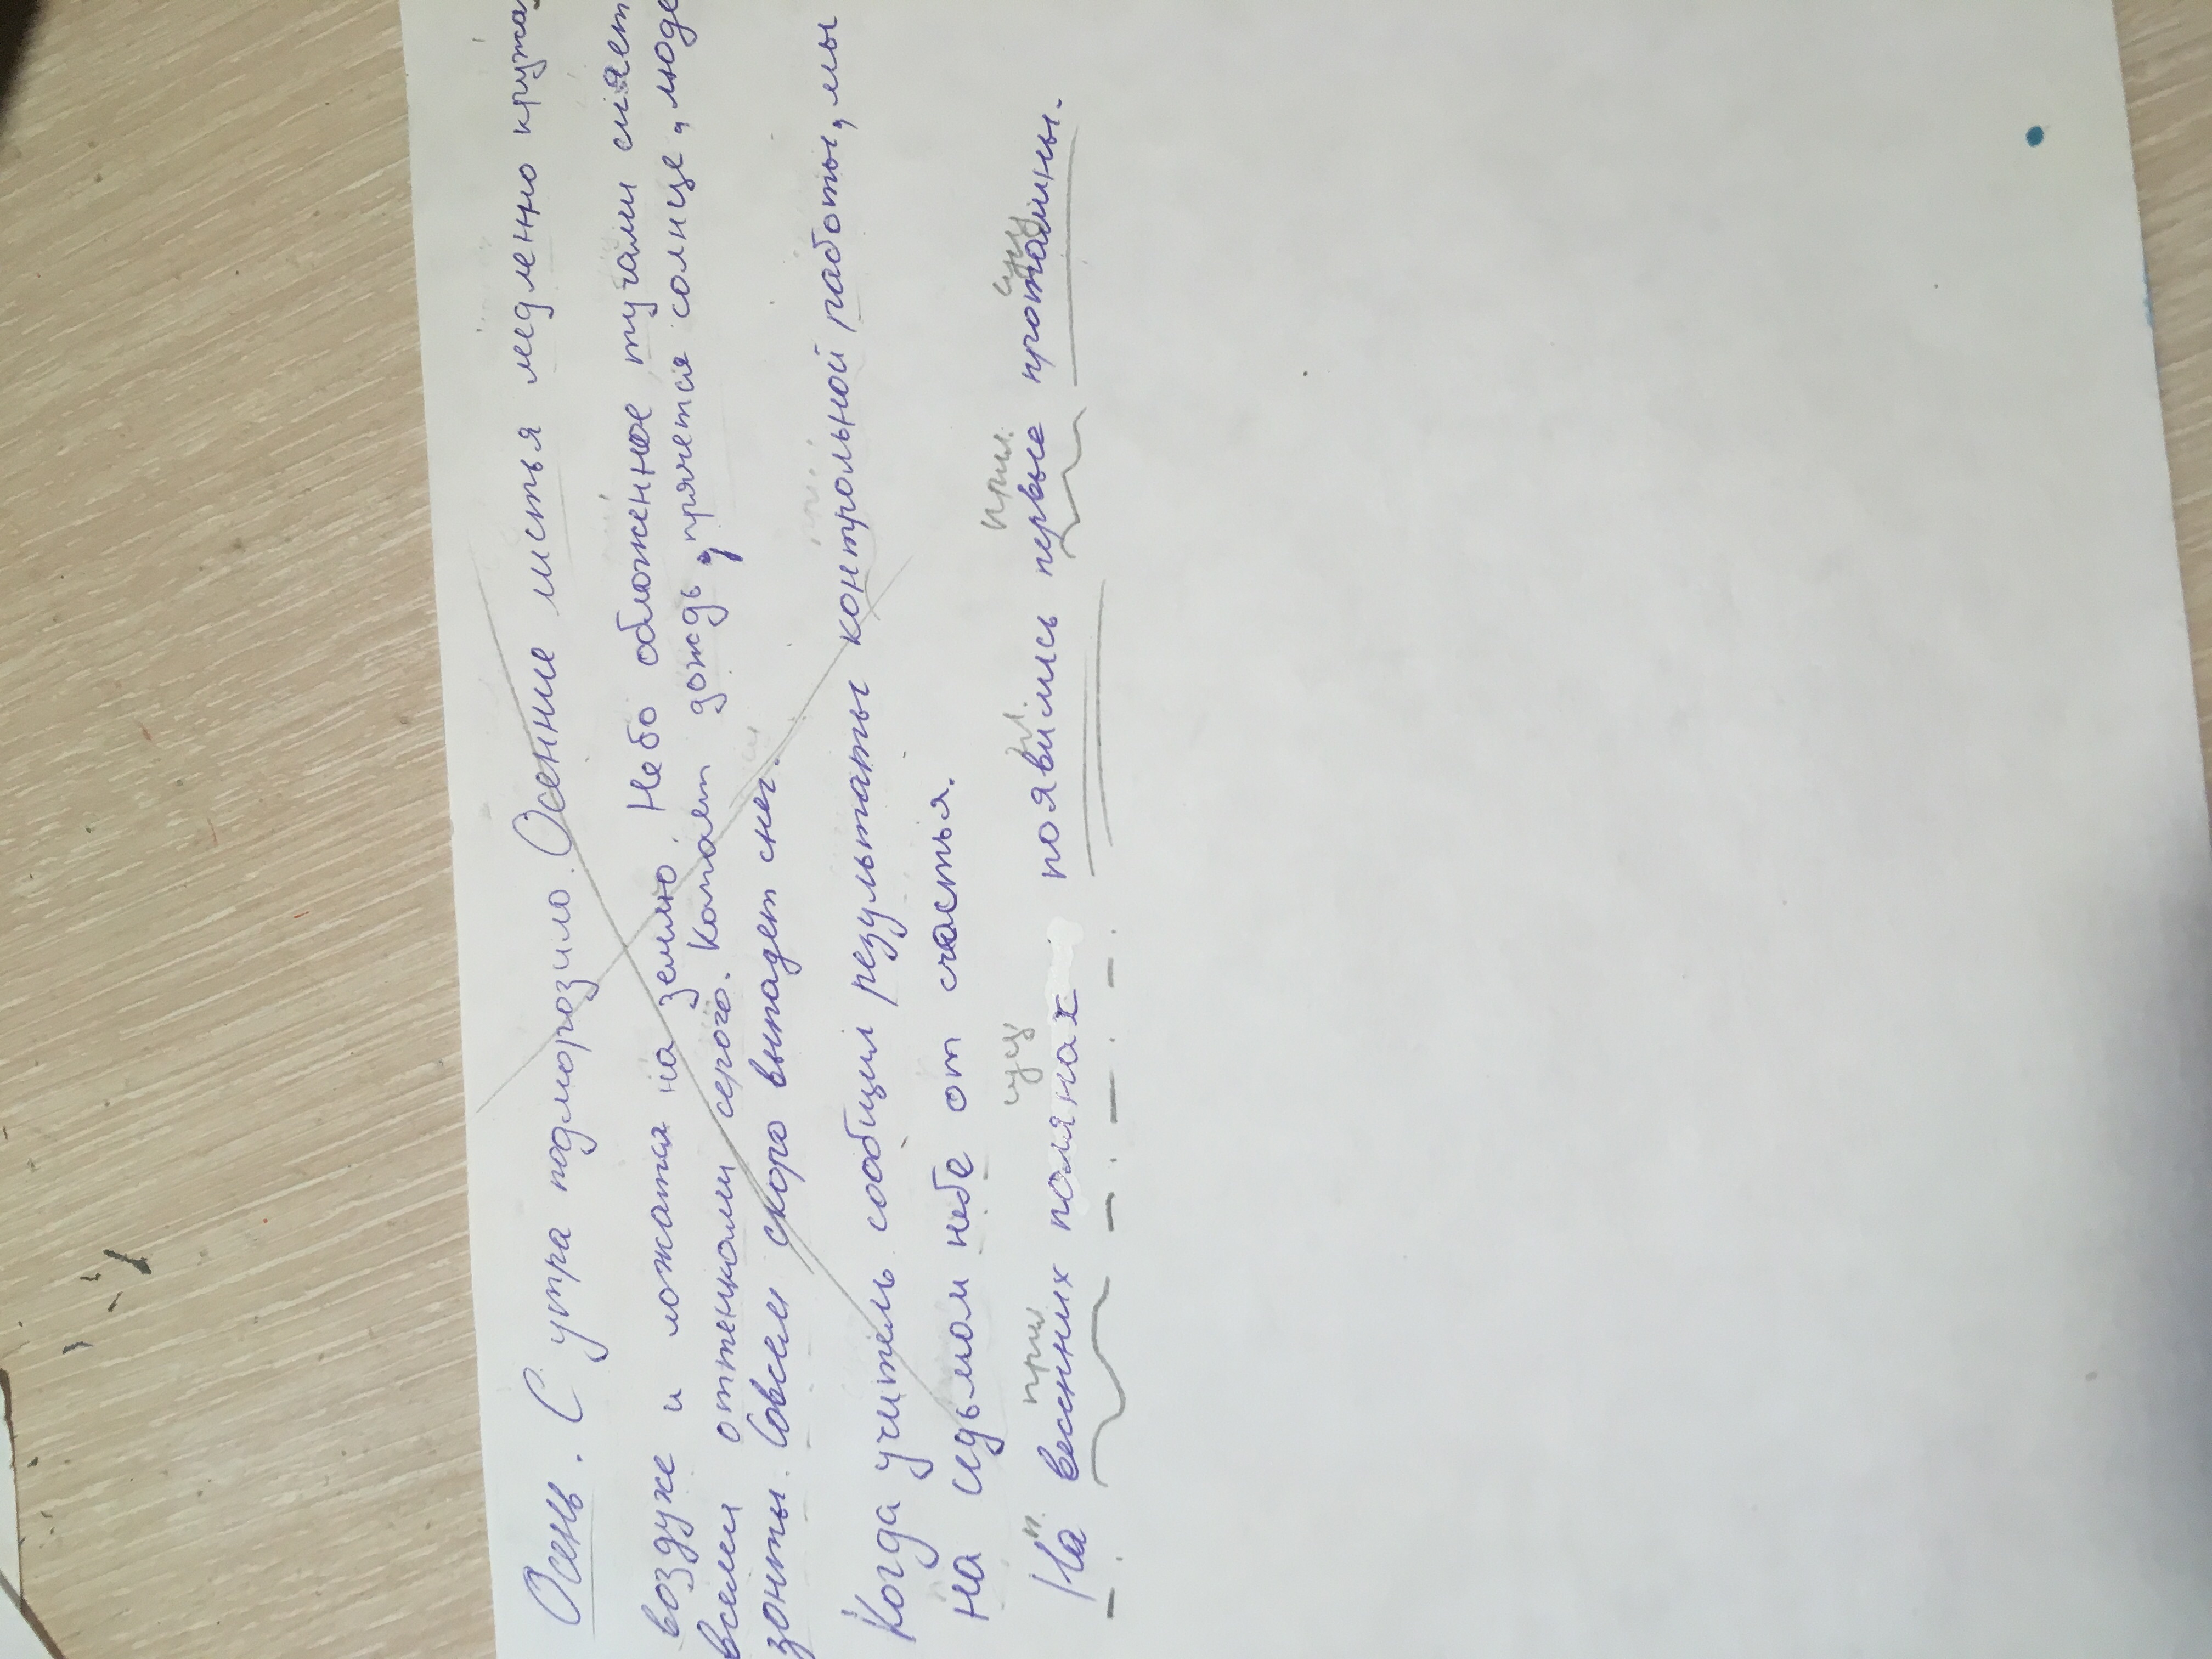 Осень. С утра подморозило. Осенние листья медленно кружа
воздухе и ложатся на землю. Небо обложенное тучами сияет
всеми оттенками серого. Капает дождь, прячется солнце, люде
зонты. Совсем скоро выпадет снег.
Когда учитель сообщил результаты контрольной работы, мы
на седьмом небе от счастья.
п. прил сущ гл. прил. сущ
На весенних полянах появились первые проталины.